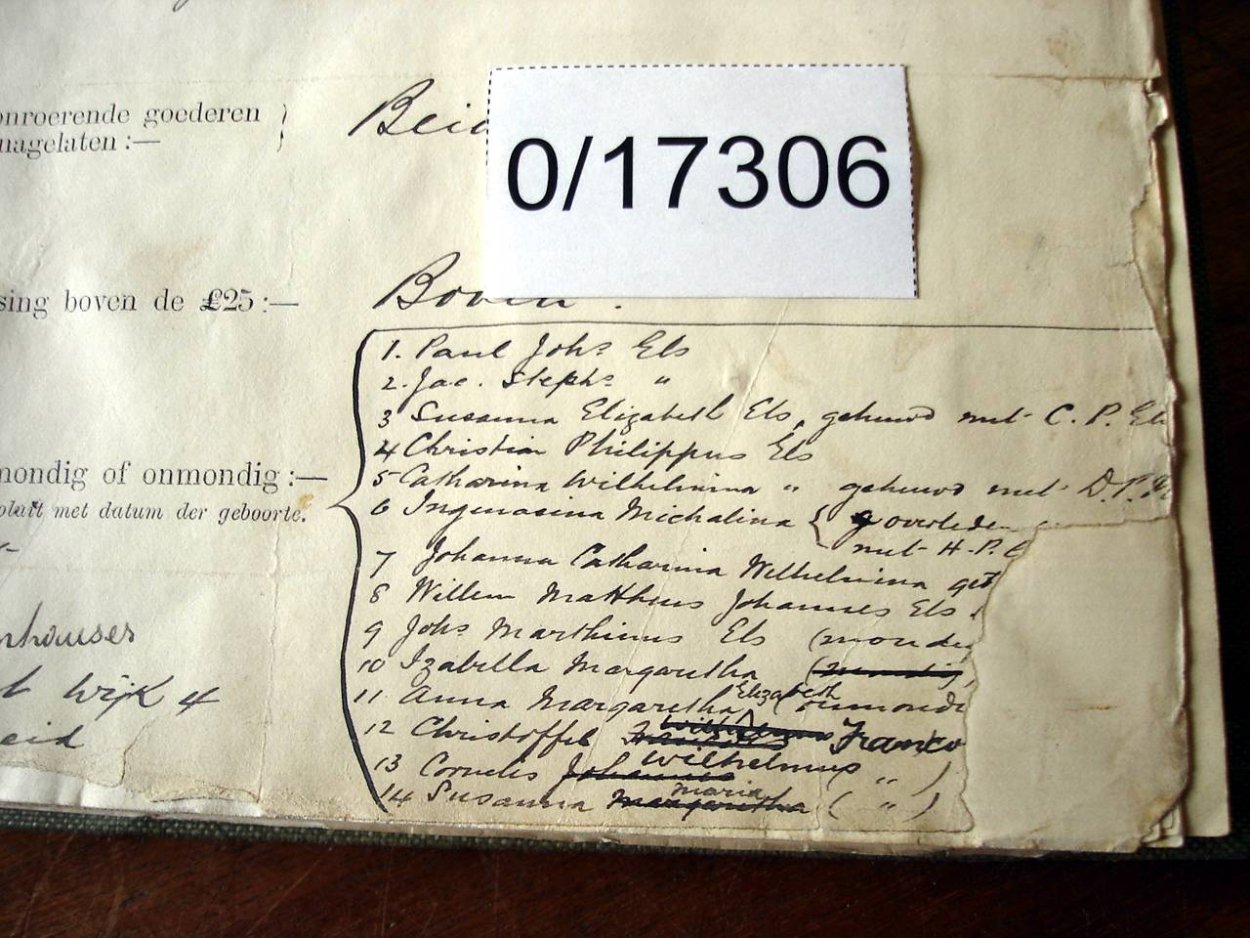 onroerende goederen }
nagelaten :—
Beid
0/17306
sing boven de £25 :—
Boven.
1. Paul Johs Els
2. Jac. Stephs "
3 Susanna Elizabeth Els, gehuwd met C. P. Els
4 Christian Philippus Els
5 Catharina Wilhelmina " gehuwd met D. P.
mondig of onmondig :—
met datum der geboorte.
6 Ingenasina Michalina { overleden
met H. P.
7 Johanna Catharina Wilhelmina get
8 Willem Mattheus Johannes Els
9 Johs Marthinus Els (mondig
10 Izabella Margaretha (mondig)
11 Anna Margaretha Elizabeth (onmondi
12 Christoffel Franco
13 Cornelis Johannes Wilhelmus " )
14 Susanna Margaretha Maria ( " )
nhauser
Wijk 4
eid